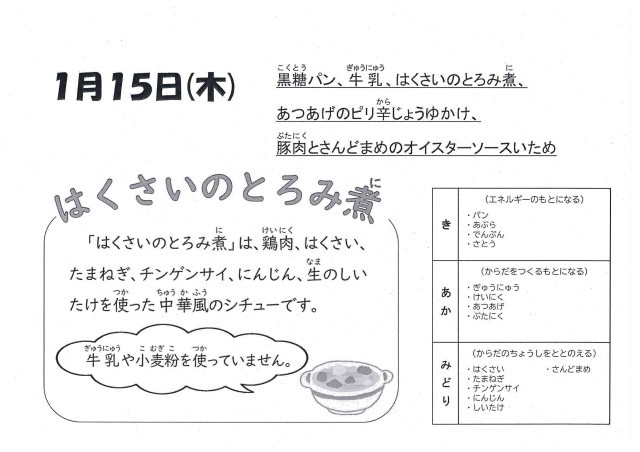 1月15日(木)
黒糖パン、牛乳、はくさいのとろみ煮、
あつあげのピリ辛じょうゆかけ、
豚肉とさんどまめのオイスターソースいため
こくとう
ぎゅうにゅう
に
から
ぶたにく
はくさいのとろみ煮
に
「はくさいのとろみ煮」は、鶏肉、はくさい、
に
けいにく
たまねぎ、チンゲンサイ、にんじん、生のしい
なま
たけを使った中華風のシチューです。
つか
ちゅうかふう
牛乳や小麦粉を使っていません。
ぎゅうにゅう
こむぎこ
つか
き
(エネルギーのもとになる)
・パン
・あぶら
・でんぷん
・さとう
あか
(からだをつくるもとになる)
・ぎゅうにゅう
・けいにく
・あつあげ
・ぶたにく
みどり
(からだのちょうしをととのえる)
・はくさい ・さんどまめ
・たまねぎ
・チンゲンサイ
・にんじん
・しいたけ